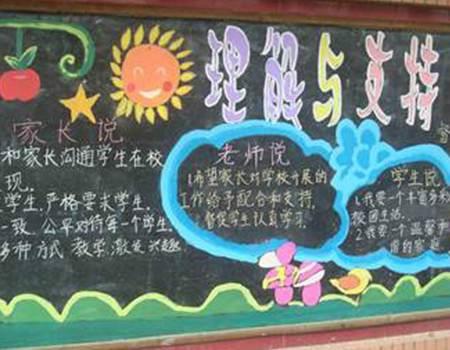 理解与支持
家长说
和家长沟通学生在校
现.
学生,严格要求学生.
一致,公平对待每一个学生.
多种方式教学,激发兴趣.
老师说
1.希望家长对学校开展的
工作给予配合和支持,
督促学生认真学习.
学生说
1.我要一个丰富多
校园生活.
2.我要一个温馨和
谐的家庭